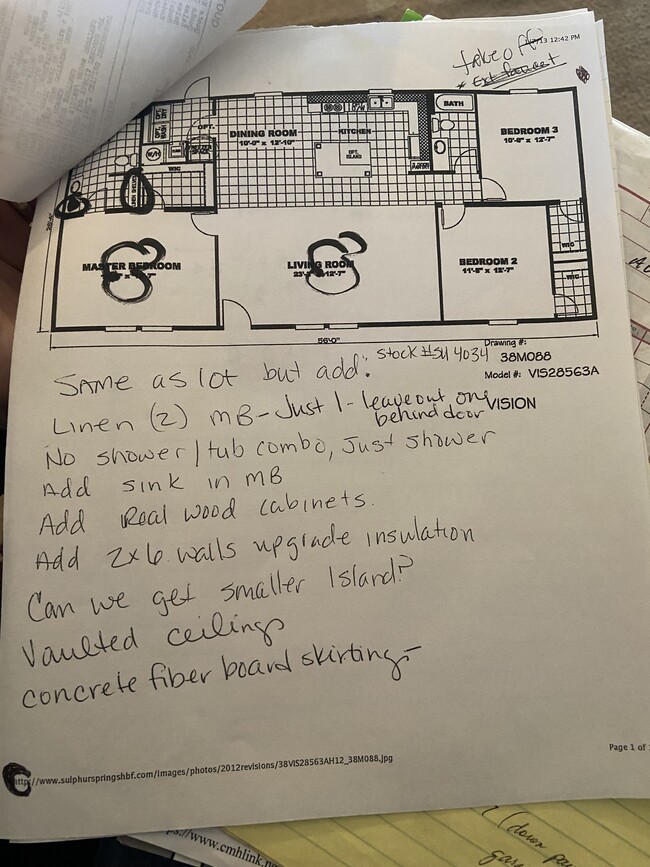 12:42 PM
take off
* Ext faucet
BATH
DINING ROOM
10'-9" x 12'-10"
KITCHEN
OPT.
OPT. ISLAND
BEDROOM 3
10'-8" x 12'-7"
W/H
WIC
WIC
WIC
MASTER BEDROOM
LIVING ROOM
12'-7"
BEDROOM 2
11'-8" x 12'-7"
56'-0"
Drawing #:
38M088
Model #: VIS28563A
VISION
Same as lot but add: Stock #SU 4034
Linen (2) MB - Just 1 - leave out one
behind door
No shower/tub combo, Just shower
Add sink in MB
Add Real wood cabinets.
Add 2x6 walls upgrade insulation
Can we get smaller Island?
Vaulted ceilings
concrete fiber board skirting-
http://www.sulphurspringshbf.com/images/photos/2012revisions/38VIS28563AH12_38M088.jpg
Page 1 of
www.cmhlink.
(down pa